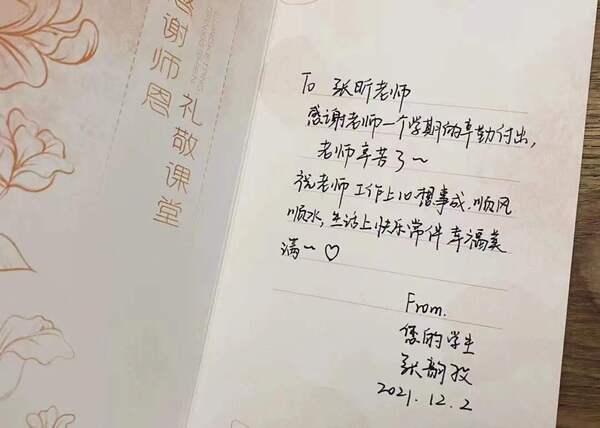 感谢师恩
礼敬课堂
To 张昕老师
感谢老师一个学期的辛勤付出,
老师辛苦了~
祝老师工作上心想事成.顺风
顺水,生活上快乐常伴 幸福美
满~♡
From.
您的学生
张韵
2021.12.2